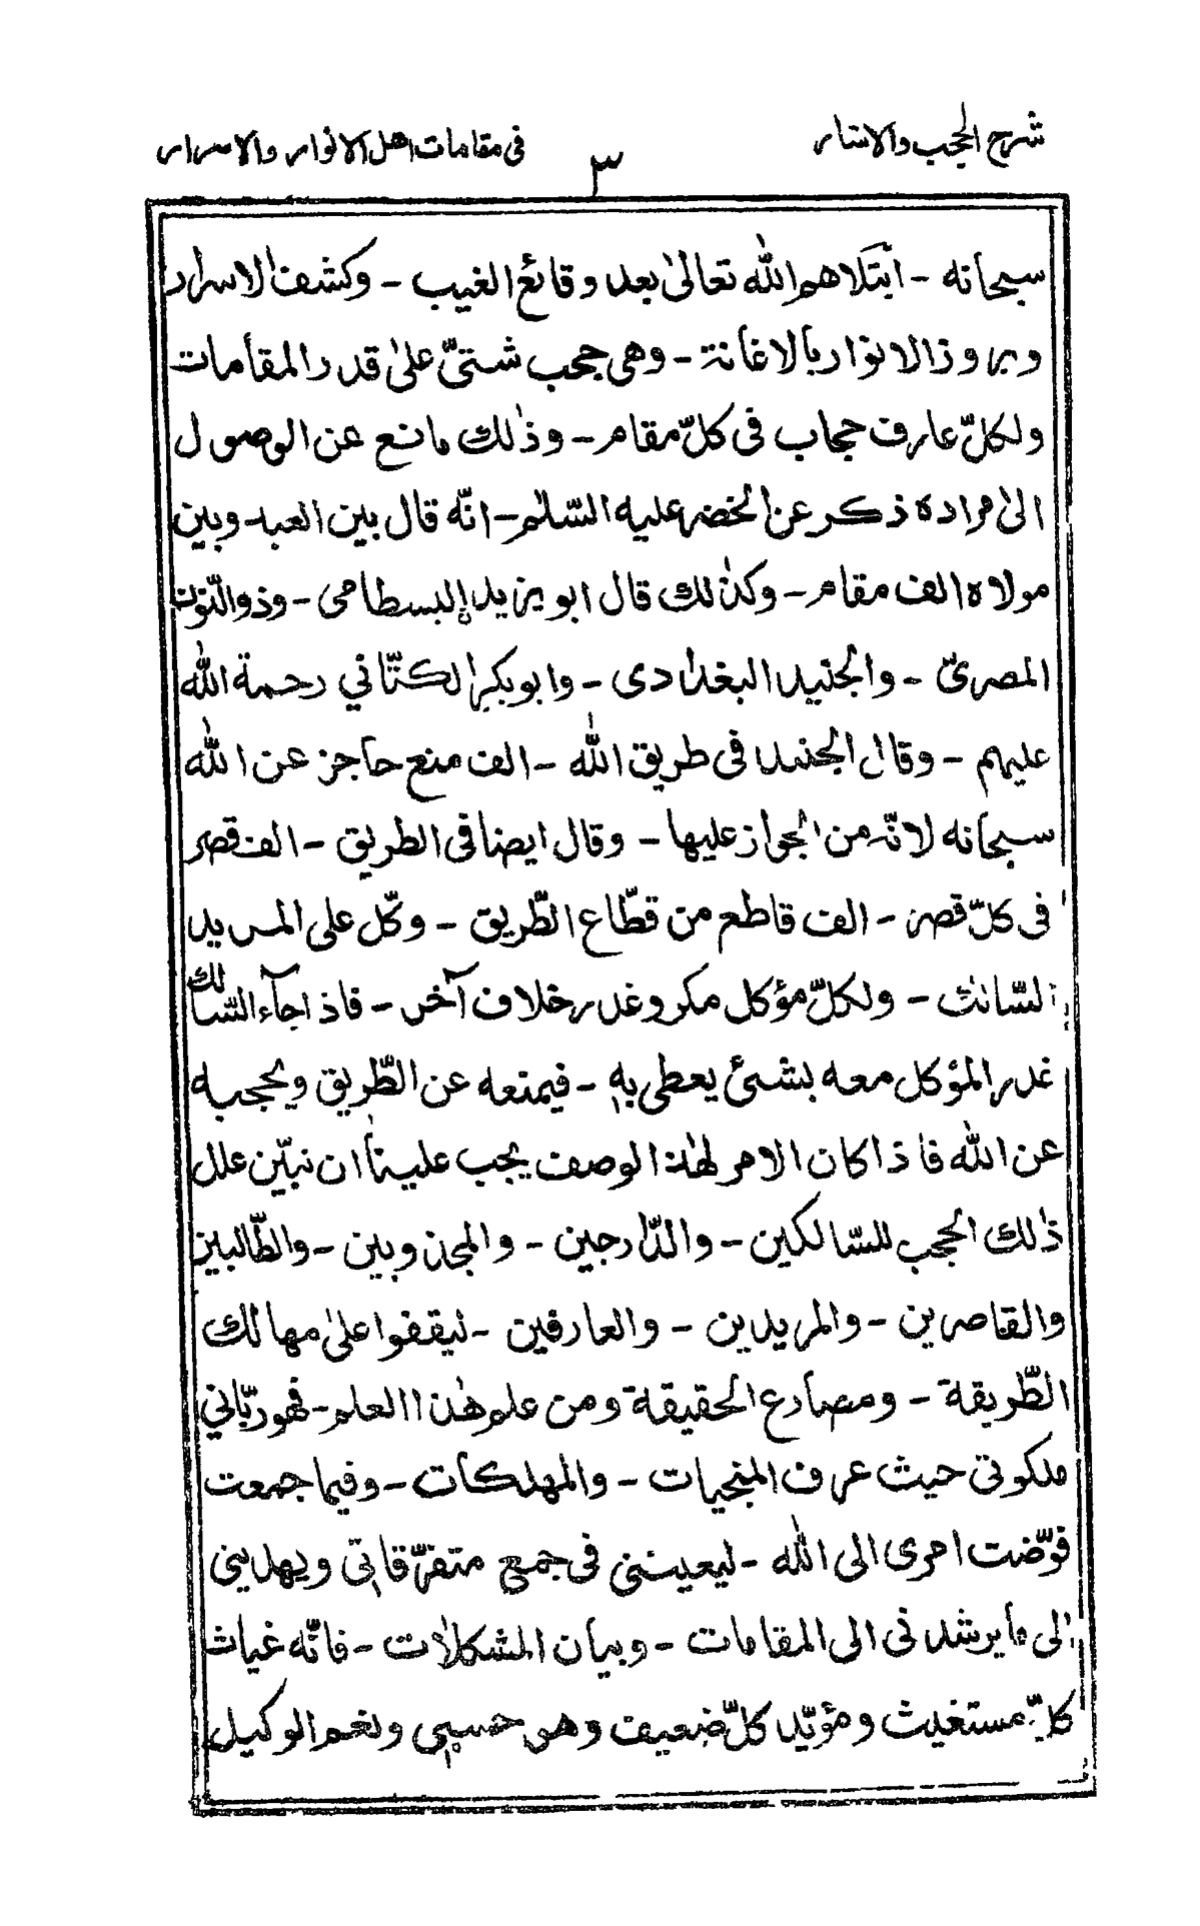 شرح الحجب والاستار
٣
فى مقامات اهل الانوار والاسرار
سبحانه - ابتلاهم الله تعالىٰ بعد وقائع الغيب - وكشف الاسرار
وبروز الانوار بالاغانة - وهى حجب شتىّ علىٰ قدر المقامات
ولكلّ عارف حجاب فى كلّ مقام - وذٰلك مانع عن الوصول
الىٰ مراده ذكر عن الخضر عليه السّلٰم - انّه قال بين العبد وبين
مولاه الف مقام - وكذٰلك قال ابو يزيد البسطامى - وذوالنّون
المصرىّ - والجنيد البغدادى - وابوبكر الكتّاني رحمة الله
عليهم - وقال الجنيد فى طريق الله - الف منع حاجز عن الله
سبحانه لانّه من الجواز عليها - وقال ايضا فى الطريق - الف قصر
فى كلّ قصر - الف قاطع من قطّاع الطّريق - وكّل على المريد
السّالك - ولكلّ مؤكل مكر وغدر خلاف آخر - فاذا جآء السّالك
غدر المؤكل معه بشئ يعطى به - فيمنعه عن الطّريق ويحجبه
عن الله فاذا كان الامر لهٰذا الوصف يجب علينا ان نبيّن علل
ذٰلك الحجب للسّالكين - والدّارجين - والمجذوبين - والطّالبين
والقاصرين - والمريدين - والعارفين - ليقفوا علىٰ مهالك
الطّريقة - ومصارع الحقيقة ومن علم هٰذا العلم - فهو ربّاني
ملكوتى حيث عرف المنجيات - والمهلكات - وفيما جمعت
فوّضت امرى الى الله - ليعيننى فى جمع متفرّقاتى ويهديني
الى ما يرشدنى الى المقامات - وبيان المشكلات - فانّه غياث
كلّ مستغيث ومؤيّد كلّ ضعيف وهو حسبى ونعم الوكيل